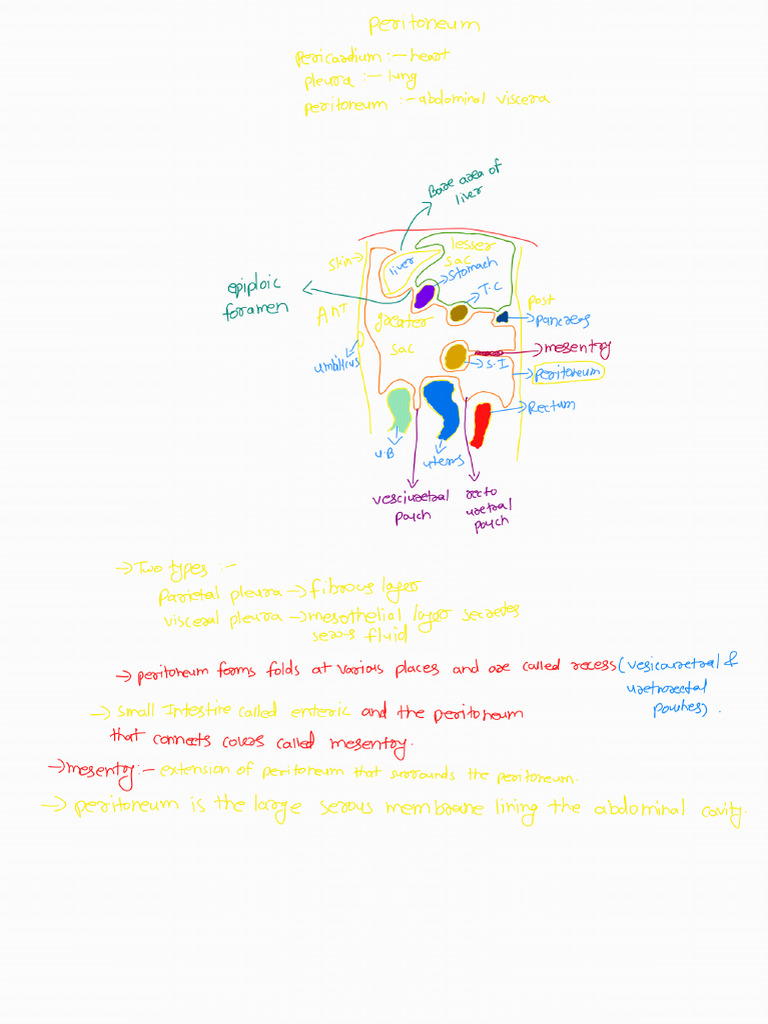 peritoneum
pericardium :- heart
pleura :- lung
peritoneum :- abdominal viscera
Bare area of
liver
skin
liver
lesser
sac
stomach
T.C
epiploic
foramen
ANT
greater
sac
post
pancreas
mesentry
umbilicus
S.I
peritoneum
Rectum
U.B
uterus
vesciuretral
pouch
recto
uretral
pouch
→ Two types :-
parietal pleura → fibrous layer
visceral pleura → mesothelial layer secretes
serous fluid
→ peritoneum forms folds at various places and are called recess (vesicouretral &
uretrorectal
pouches) .
→ small Intestine called enteric and the peritoneum
that connects covers called mesentry.
→ mesentry :- extension of peritoneum that surrounds the peritoneum.
→ peritoneum is the large serous membrane lining the abdominal cavity.